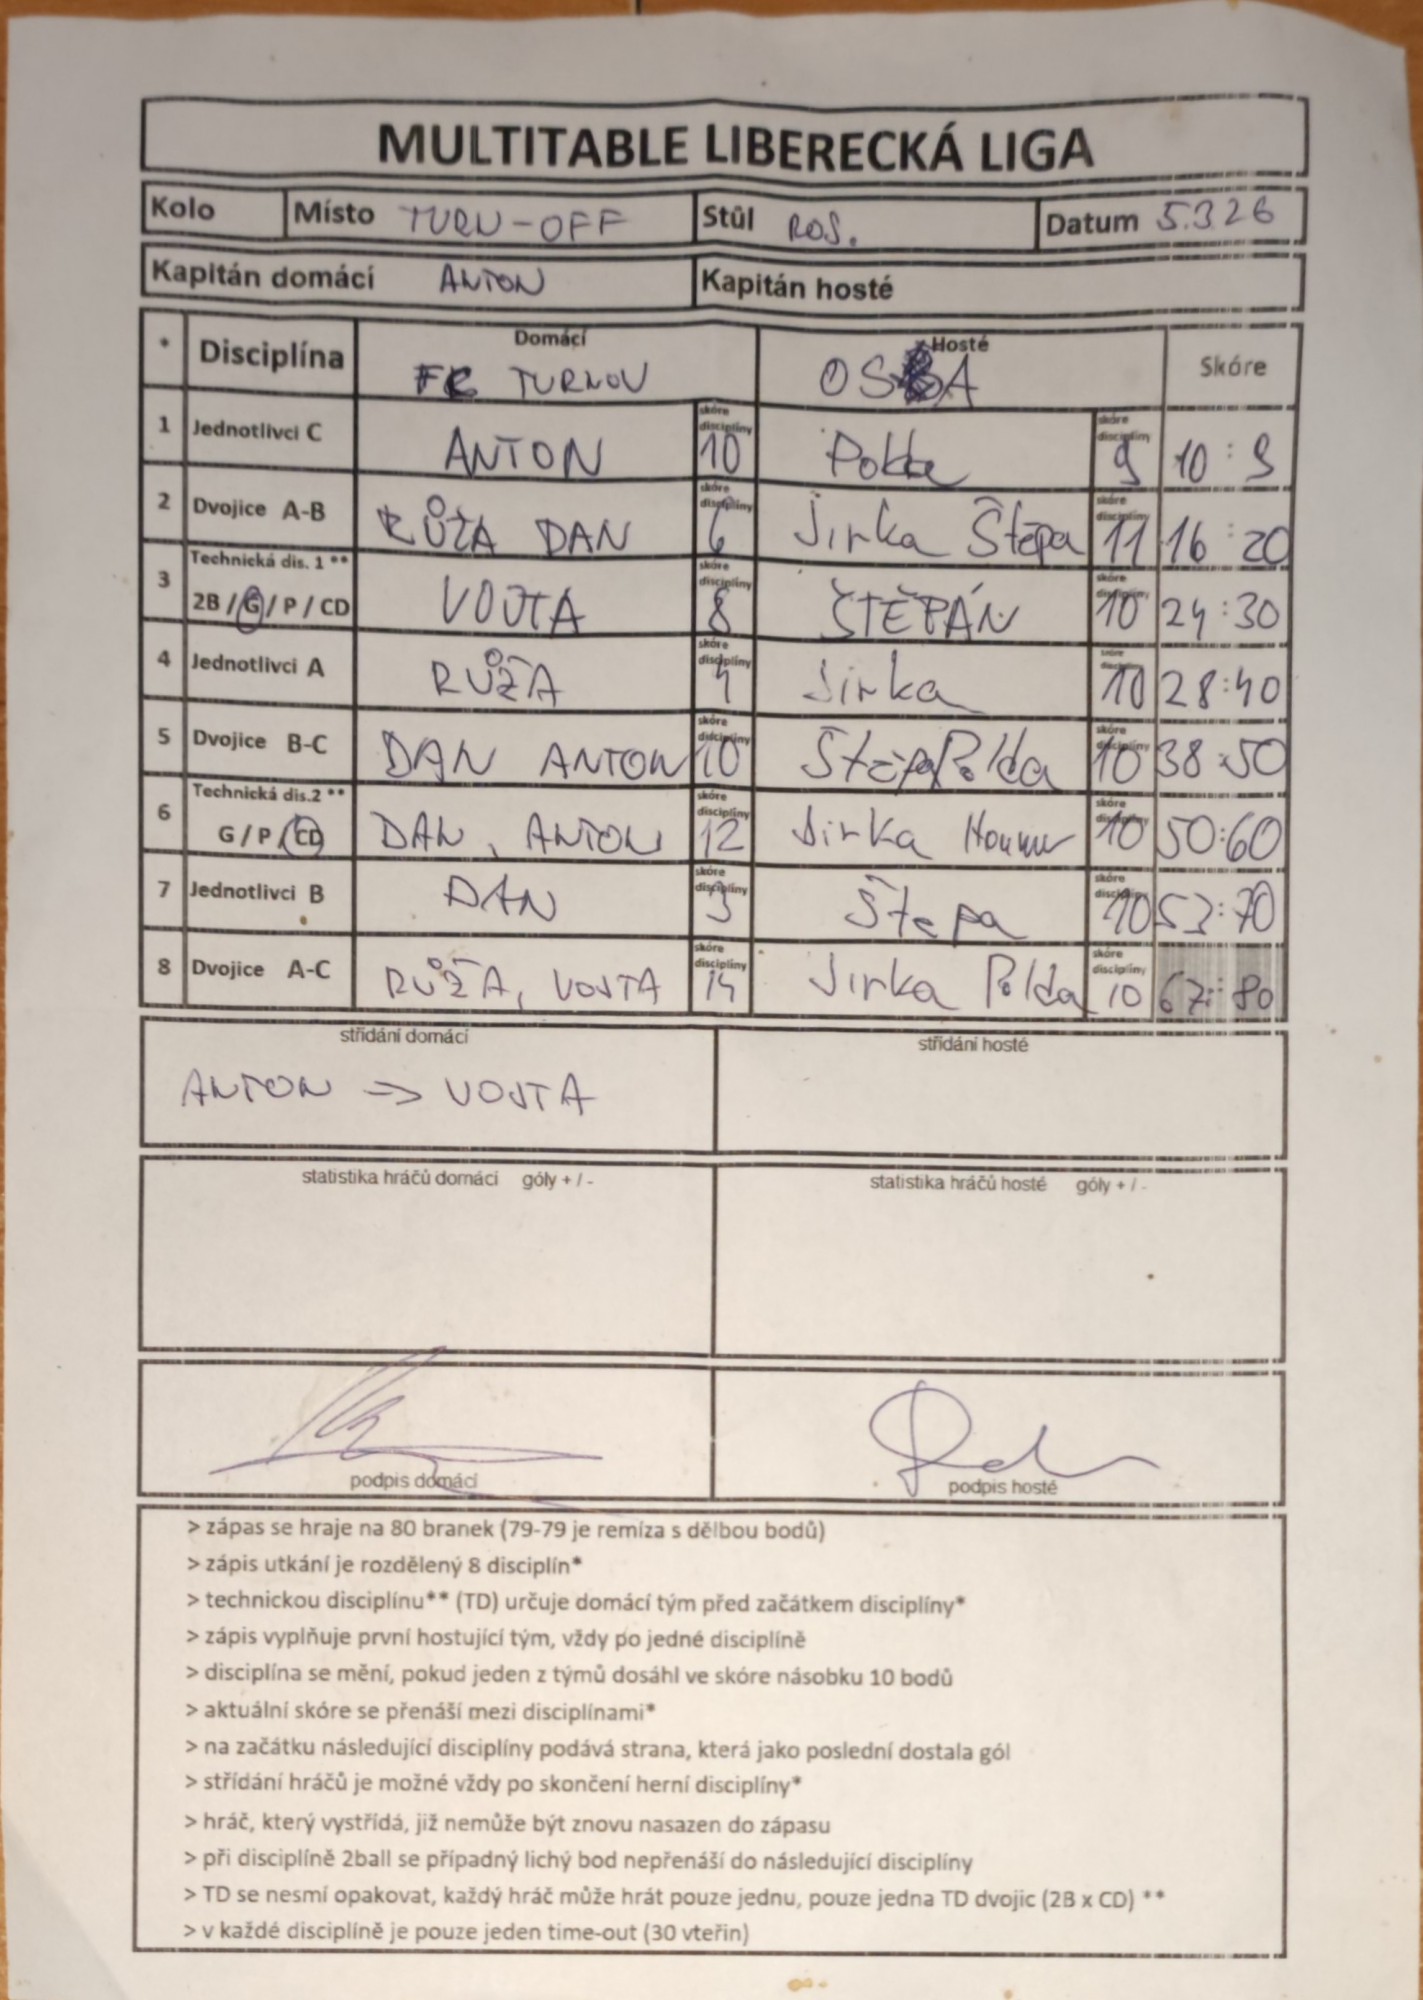 MULTITABLE LIBERECKÁ LIGA
Kolo Místo TURN-OFF Stůl ROS. Datum 5.3.26
Kapitán domácí ANTON Kapitán hosté
* Disciplína Domácí FK TURNOV Hosté OSBA Skóre
1 Jednotlivci C ANTON skóre disciplíny 10 Polda skóre disciplíny 9 10:9
2 Dvojice A-B RŮŽA DAN skóre disciplíny 6 Jirka Štěpa skóre disciplíny 11 16:20
Technická dis. 1 **
3 2B / G / P / CD VOJTA skóre disciplíny 8 ŠTĚPÁN skóre disciplíny 10 24:30
4 Jednotlivci A RŮŽA skóre disciplíny 4 Jirka skóre disciplíny 10 28:40
5 Dvojice B-C DAN ANTON skóre disciplíny 10 Štěpa Polda skóre disciplíny 10 38:50
Technická dis.2 **
6 G / P / CD DAN, ANTON skóre disciplíny 12 Jirka skóre disciplíny 10 50:60
7 Jednotlivci B DAN skóre disciplíny 3 Štepa skóre disciplíny 10 53:70
8 Dvojice A-C RŮŽA, VOJTA skóre disciplíny 14 Jirka Polda skóre disciplíny 10 67:80
střídání domácí střídání hosté
ANTON => VOJTA
statistika hráčů domácí góly + / - statistika hráčů hosté góly + / -
podpis domácí podpis hosté
> zápas se hraje na 80 branek (79-79 je remíza s dělbou bodů)
> zápis utkání je rozdělený 8 disciplín*
> technickou disciplínu** (TD) určuje domácí tým před začátkem disciplíny*
> zápis vyplňuje první hostující tým, vždy po jedné disciplíně
> disciplína se mění, pokud jeden z týmů dosáhl ve skóre násobku 10 bodů
> aktuální skóre se přenáší mezi disciplínami*
> na začátku následující disciplíny podává strana, která jako poslední dostala gól
> střídání hráčů je možné vždy po skončení herní disciplíny*
> hráč, který vystřídá, již nemůže být znovu nasazen do zápasu
> při disciplíně 2ball se případný lichý bod nepřenáší do následující disciplíny
> TD se nesmí opakovat, každý hráč může hrát pouze jednu, pouze jedna TD dvojic (2B x CD) **
> v každé disciplíně je pouze jeden time-out (30 vteřin)